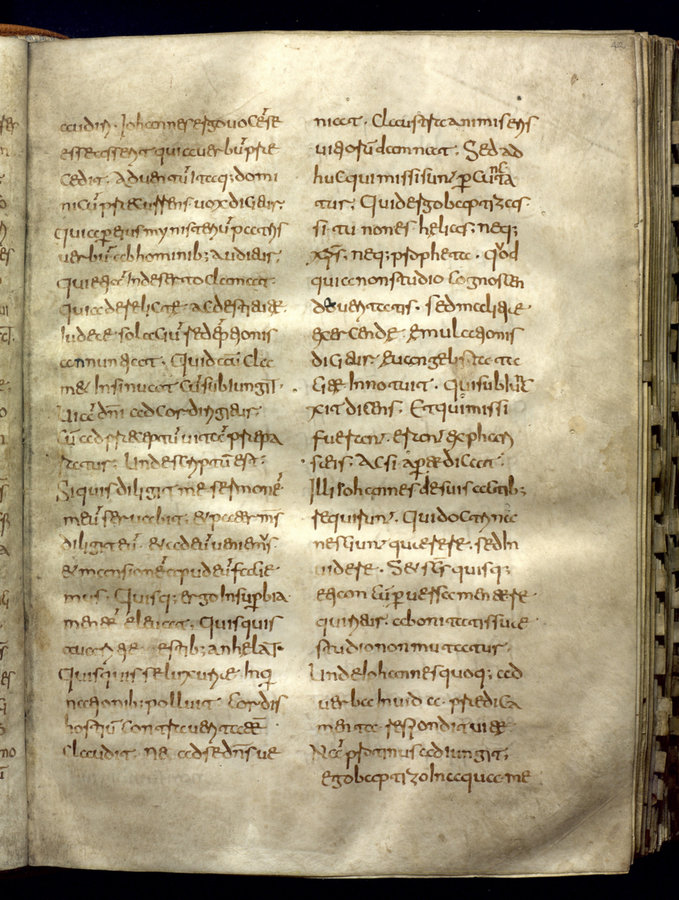 42
audis. Iohannes ergo uocē se
esse asserit quia uerbū prae
cedit. Aduentū itaq; domi
nicū praecurrens uox dicitur.
quia per eius mynisteriū patris
uerbū ab hominib; auditur.
qui etiā In deserto clamat.
quia derelictae ac destitutae
Iudeae solaciū redēptionis
adnuntiat. Quid autē cla
met Insinuat cū subiungit.
Uiā dn̄i ad cor dirigitur.
cū ad praeceptū uitae praepa
ratur. Unde scriptū est.
Si quis diligit me sermonē
meū seruabit. et pater m̄s
diligit eū. et ad eū ueniem̄s.
et mansionē apud eū facie
mus. Quisq; ergo In superbia
mentē eleuat. Quisquis
auaritiae estib; anhelat.
Quisquis se luxuriae Inq
nationib; polluit. cordis
hostiū contra ueritatē
claudit. ne ad se dn̄s ue
niat. Claustra animi
damnat. Sed ad
huc qui missi sunt percuncta
tur. Quid ergo baptizas
si tu non es helias. neq;
xp̄s. neq; propheta. quod
quia non studio cognoscen
dae ueritatis. sed maliciae
exercendae aemulationis
dicitur. euangelista ta
citae Innotuit. qui subiu
xit dicens. Et qui missi
fuerant. erant ex phari
seis. Ac si aperte dicat.
Illi Iohannes de suis actib;
requirunt. Qui doctrinā
nesciunt quaerere. sed In
uidere. Sed scs quisq;
etiam cū peruersa mente re
quiritur. a bonitatis suae
studio non mutatur.
Unde Iohannes quoq; ad
uerba Inuidiae. praedica
menta respondit uitae
Nā protinus adiungit.
ego baptizo In aqua. me